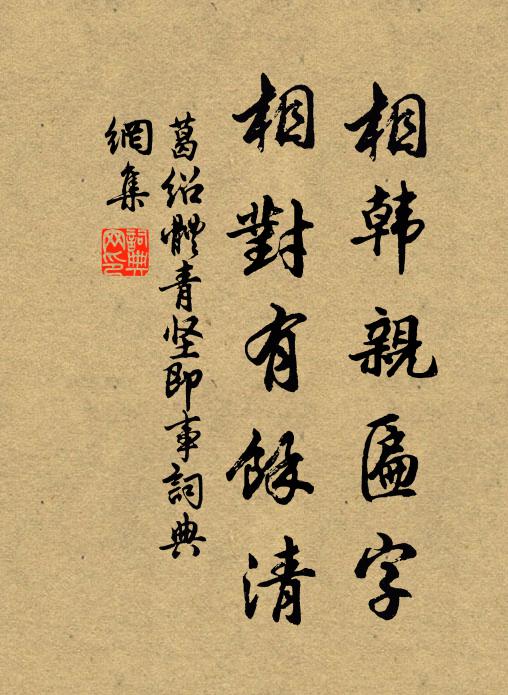 相韩親匾字
相對有餘清
葛绍體青坚即事詞典
網集
詞典
网印